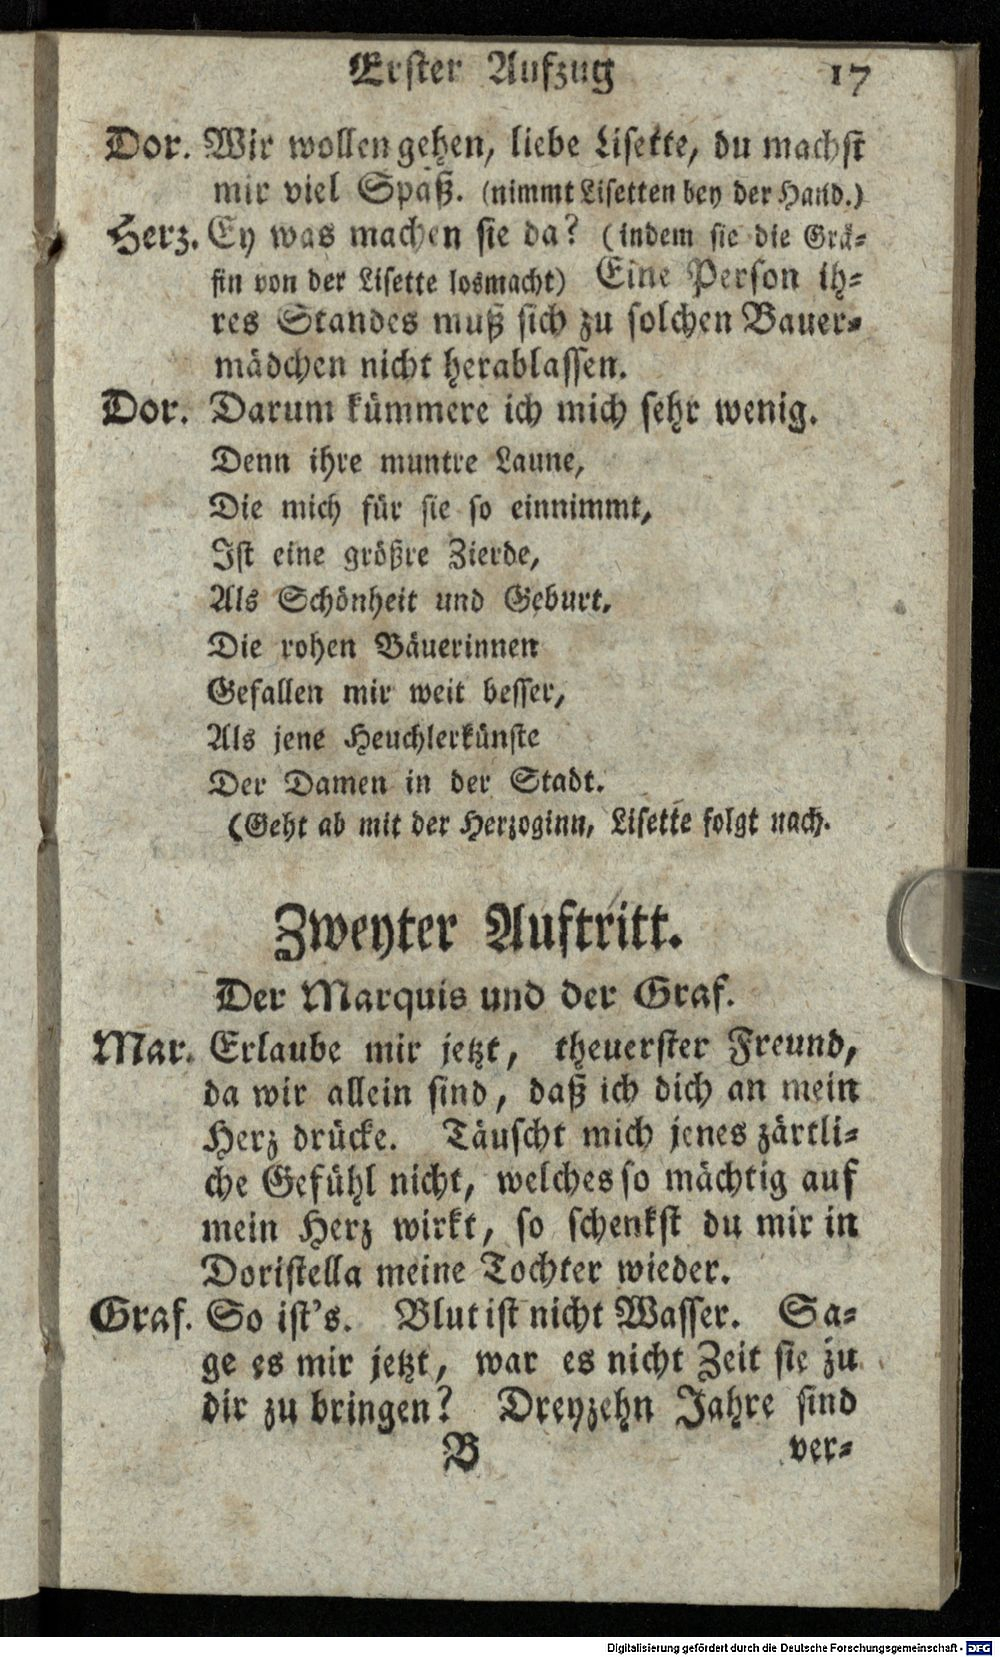 Erster Aufzug 17
Dor. Wir wollen gehen, liebe Lisette, du machst
mir viel Spaß. (nimmt Lisetten bey der Hand.)
Herz. Ey was machen sie da? (indem sie die Grä-
fin von der Lisette losmacht) Eine Person ih-
res Standes muß sich zu solchen Bauer-
mädchen nicht herablassen.
Dor. Darum kümmere ich mich sehr wenig.
Denn ihre muntre Laune,
Die mich für sie so einnimmt,
Ist eine größre Zierde,
Als Schönheit und Geburt.
Die rohen Bäuerinnen
Gefallen mir weit besser,
Als jene Heuchlerkünste
Der Damen in der Stadt.
(Geht ab mit der Herzoginn, Lisette folgt nach.
Zweyter Auftritt.
Der Marquis und der Graf.
Mar. Erlaube mir jetzt, theuerster Freund,
da wir allein sind, daß ich dich an mein
Herz drücke. Täuscht mich jenes zärtli-
che Gefühl nicht, welches so mächtig auf
mein Herz wirkt, so schenkst du mir in
Doristella meine Tochter wieder.
Graf. So ist's. Blut ist nicht Wasser. Sa-
ge es mir jetzt, war es nicht Zeit sie zu
dir zu bringen? Dreyzehn Jahre sind
B ver-
Digitalisierung gefördert durch die Deutsche Forschungsgemeinschaft - DFG